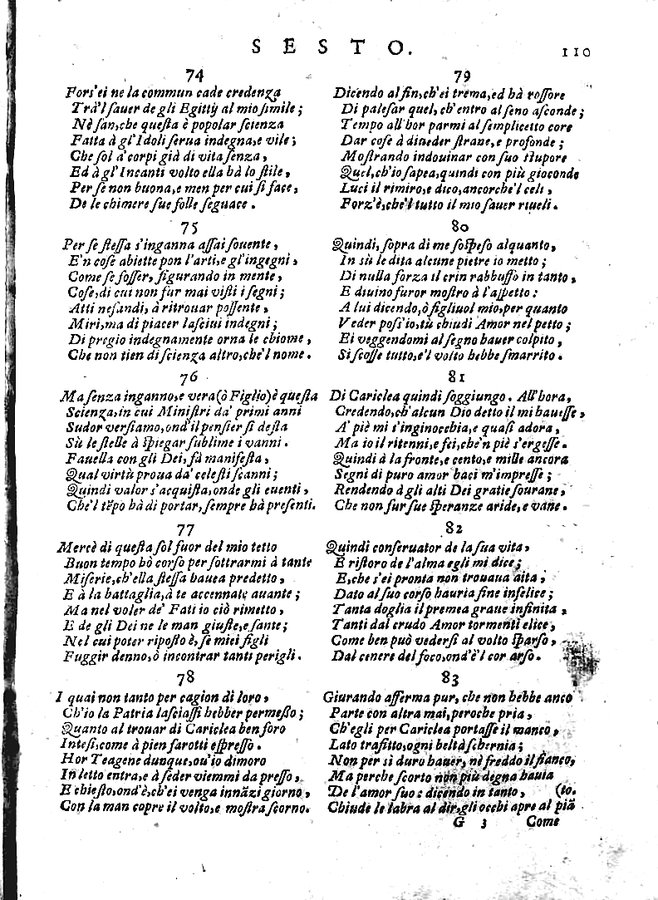 SESTO.
110
74
Fors'ei ne la commun cade credenza
Tra'l sauer de gli Egittij al mio simile;
Nè san, che questa è popolar scienza
Fatta à gl'Idoli serua indegna, e vile;
Che sol a' corpi già di vita senza,
Ed à gl'Incanti volto ella hà lo stile,
Per se non buona, e men per cui si face,
De le chimere sue folle seguace.
75
Per se stessa s'inganna assai souente,
E'n cose abiette pon l'arti, e gl'ingegni,
Come se fosser, figurando in mente,
Cose, di cui non fur mai visti i segni;
Atti nefandi, à ritrouar possente,
Miri, ma di piacer lasciui indegni;
Di pregio indegnamente orna le chiome,
Che non tien di scienza altro, che'l nome.
76
Ma senza inganno, e vera (ò Figlio) è questa
Scienza, in cui Ministri da' primi anni
Sudor versiamo, ond'il pensier si desta
Sù le stelle à spiegar sublime i vanni.
Fauella con gli Dei, fà manifesta,
Qual virtù proua da' celesti scanni;
Quindi valor s'acquista, onde gli euenti,
Che'l tẽpo hà di portar, sempre hà presenti.
77
Mercè di questa sol fuor del mio tetto
Buon tempo hò corso per sottrarmi à tante
Miserie, ch'ella stessa hauea predetto,
E à la battaglia, à te accennate auante;
Ma nel voler de' Fati io ciò rimetto,
E de gli Dei ne le man giuste, e sante;
Nel cui poter riposto è, se miei figli
Fuggir denno, ò incontrar tanti perigli.
78
I quai non tanto per cagion di loro,
Ch'io la Patria lasciassi hebber permesso;
Quanto al trouar di Cariclea ben foro
Intesi, come à pien farotti espresso.
Hor Teagene dunque, ou'io dimoro
In letto entra, e à seder viemmi da presso,
E chiesto, ond'è, ch'ei venga innãzi giorno,
Con la man copre il volto, e mostra scorno.
79
Dicendo al fin, ch'ei trema, ed hà rossore
Di palesar quel, ch'entro al seno asconde;
Tempo all'hor parmi al semplicetto core
Dar cose à diueder strane, e profonde;
Mostrando indouinar con suo stupore
Quel, ch'io sapea, quindi con più gioconde
Luci il rimiro, e dico, ancorche'l celi,
Forz'è, che'l tutto il mio sauer riueli.
80
Quindi, sopra di me sospeso alquanto,
In sù le dita alcune pietre io metto;
Di nulla forza il crin rabbuffò in tanto,
E diuino furor mostro à l'aspetto:
A lui dicendo, ò figliuol mio, per quanto
Veder poss'io, tù chiudi Amor nel petto;
Ei veggendomi al segno hauer colpito,
Si scosse tutto, e'l volto hebbe smarrito.
81
Di Cariclea quindi soggiungo. All'hora,
Credendo, ch'alcun Dio detto il mi hauesse,
A' piè mi s'inginocchia, e quasi adora,
Ma io il ritenni, e fei, che'n piè s'ergesse.
Quindi à la fronte, e cento, e mille ancora
Segni di puro amor baci m'impresse;
Rendendo à gli alti Dei gratie sourane,
Che non fur sue speranze aride, e vane.
82
Quindi conseruator de la sua vita,
E ristoro de l'alma egli mi dice;
E, che s'ei pronta non trouaua aita,
Dato al suo corso hauria fine infelice;
Tanta doglia il premea graue infinita,
Tanti dal crudo Amor tormenti elice,
Come ben può vedersi al volto sparso,
Dal cener del foco, ond'è'l cor arso.
83
Giurando afferma pur, che non hebbe anco
Parte con altra mai, peroche pria,
Ch'egli per Cariclea portasse il manco,
Lato trafitto, ogni beltà schernia;
Non per sì duro hauer, nè freddo il fianco,
Ma perche scorto non più degna hauia
De l'amor suo: dicendo in tanto, (to.
Chiude le labra al dir, gli occhi apre al piã
G 3 Come